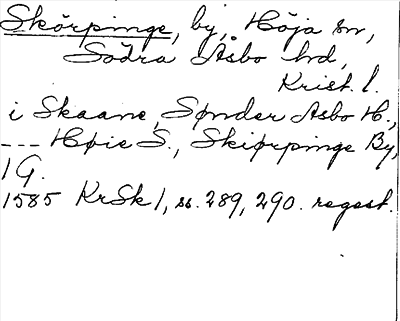 Skörpinge, by, Höja sn,
Södra Åsbo hd,
Krist. l.
i Skaane, Sønder Asbo H.,
--- Høie S., Skiørpinge By,
1 G.
1585 KrSk 1, ss. 289, 290. regest.